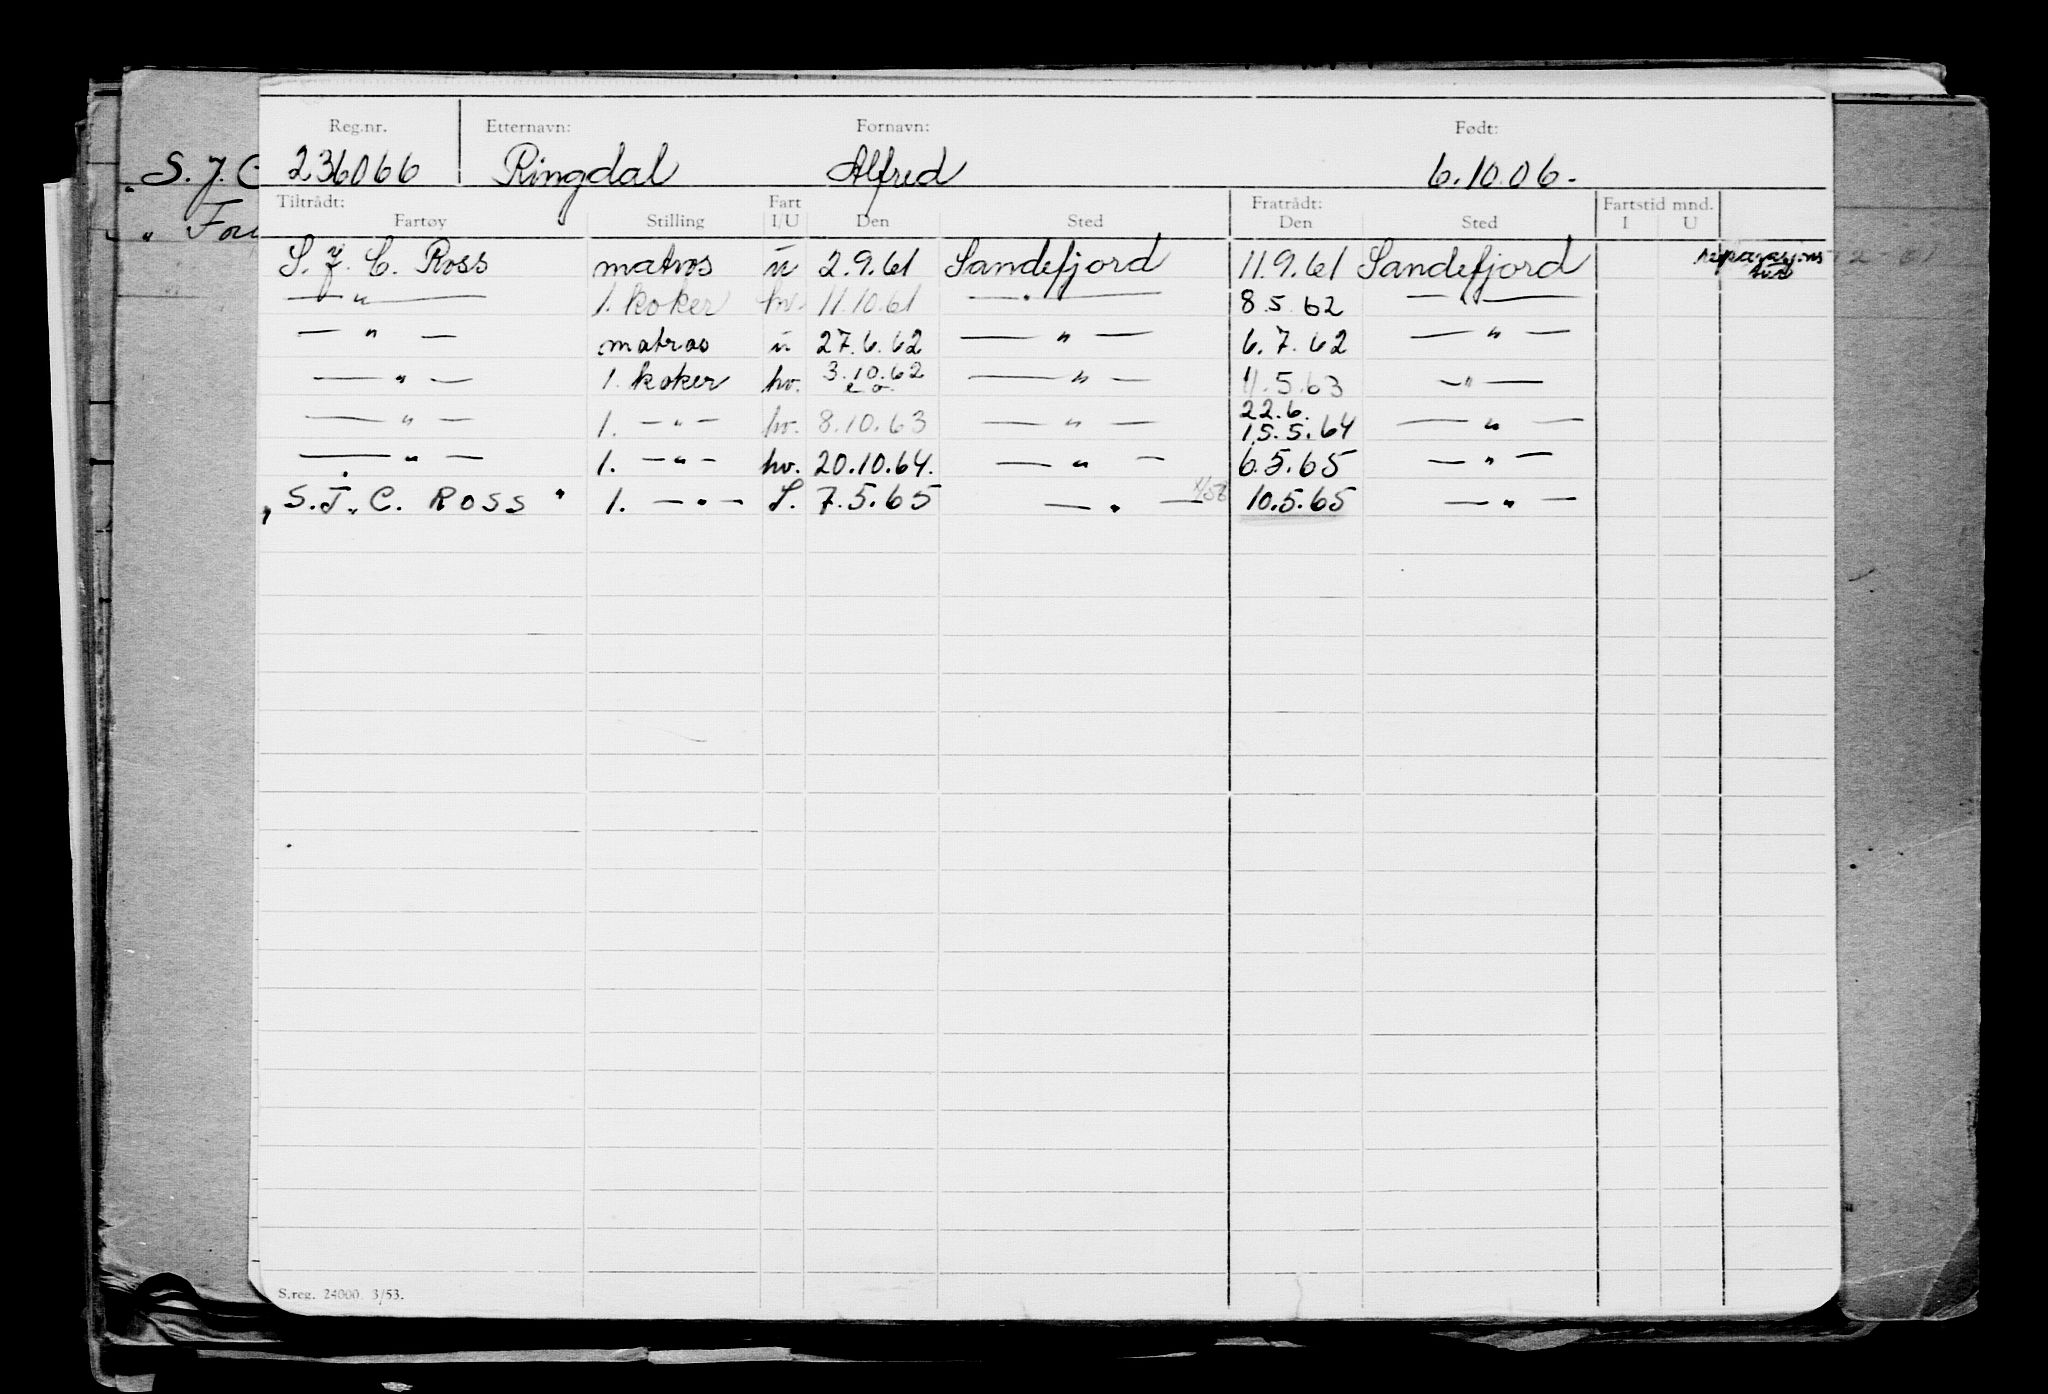 Reg.nr. Etternavn: Fornavn: Født:
" S. J. C 236066 Ringdal Alfred 6.10.06.
Tiltrådt: Fart Fratrådt: Fartstid mnd.
Fartøy Stilling I/U Den Sted Den Sted I U
S. J. C. Ross matros u 2.9.61 Sandefjord 11.9.61 Sandefjord reparasjons
— " — 1. koker hv. 11.10.61 — " — 8.5.62 — " —
— " — matros u 27.6.62 — " — 6.7.62 — " —
— " — 1. koker hv. 3.10.62 — " — 11.5.63 — " —
e.o.
22.6.
— " — 1. — " — hv. 8.10.63 — " — 15.5.64 — " —
— " — 1. — " — hv. 20.10.64. — " — 6.5.65 — " —
" S. J. C. ROSS " 1. — " — S. 7.5.65 — " — 10.5.65 — " —
S.reg. 24000. 3/53.